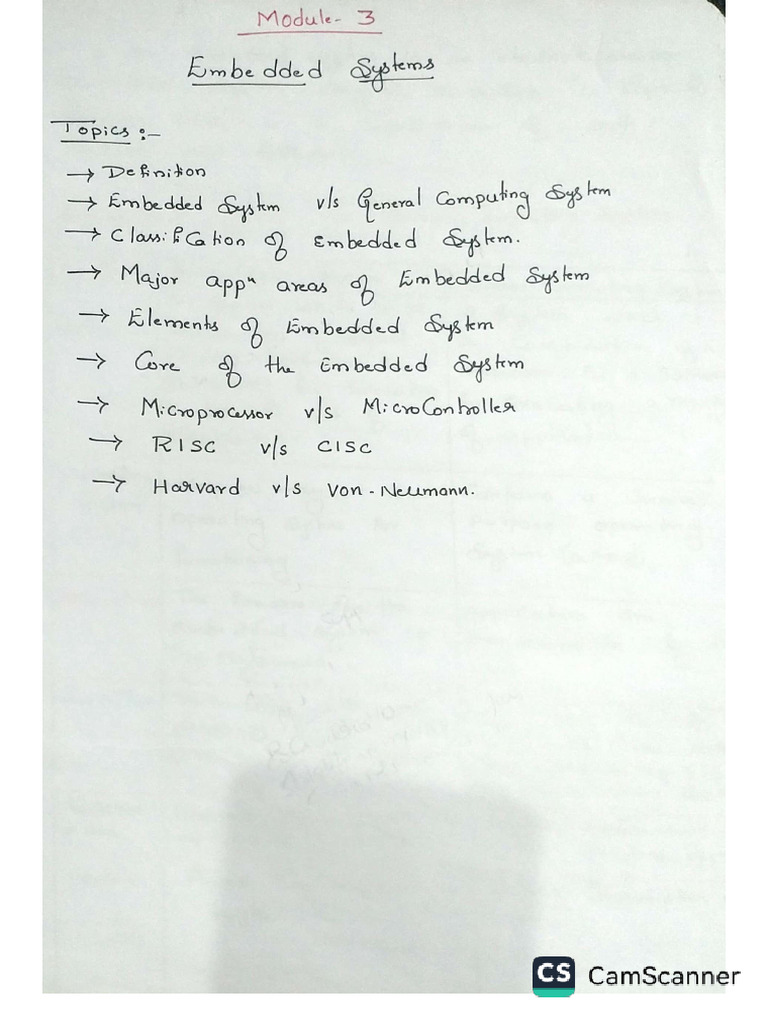 Module - 3
Embedded Systems
Topics :-
→ Definition
→ Embedded System v/s General Computing System
→ Classification of Embedded System.
→ Major appⁿ areas of Embedded System
→ Elements of Embedded System
→ Core of the Embedded System
→ Microprocessor v/s MicroController
→ RISC v/s CISC
→ Harvard v/s Von-Neumann.
CS CamScanner